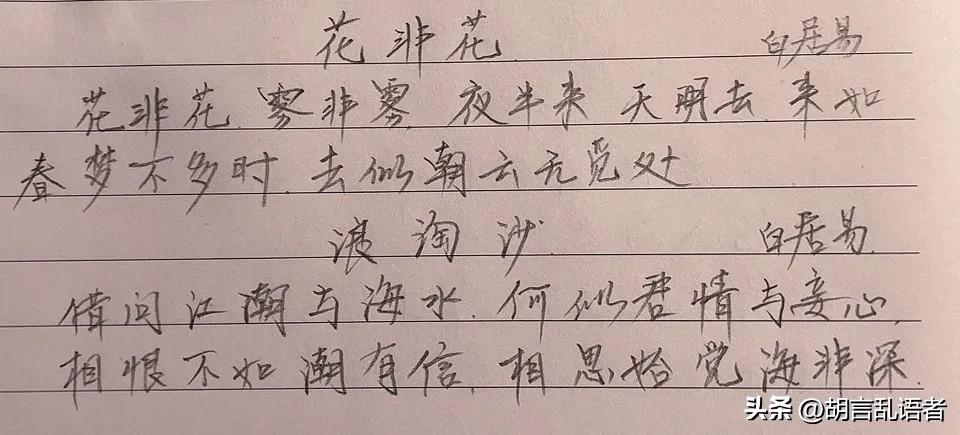 花非花 白居易
花非花.雾非雾.夜半来 天明去.来如
春梦不多时.去似潮云无觅处
浪淘沙. 白居易.
借问江潮与海水.何似君情与妾心.
相恨不如潮有信.相思始觉海非深.
头条 @胡言乱语者